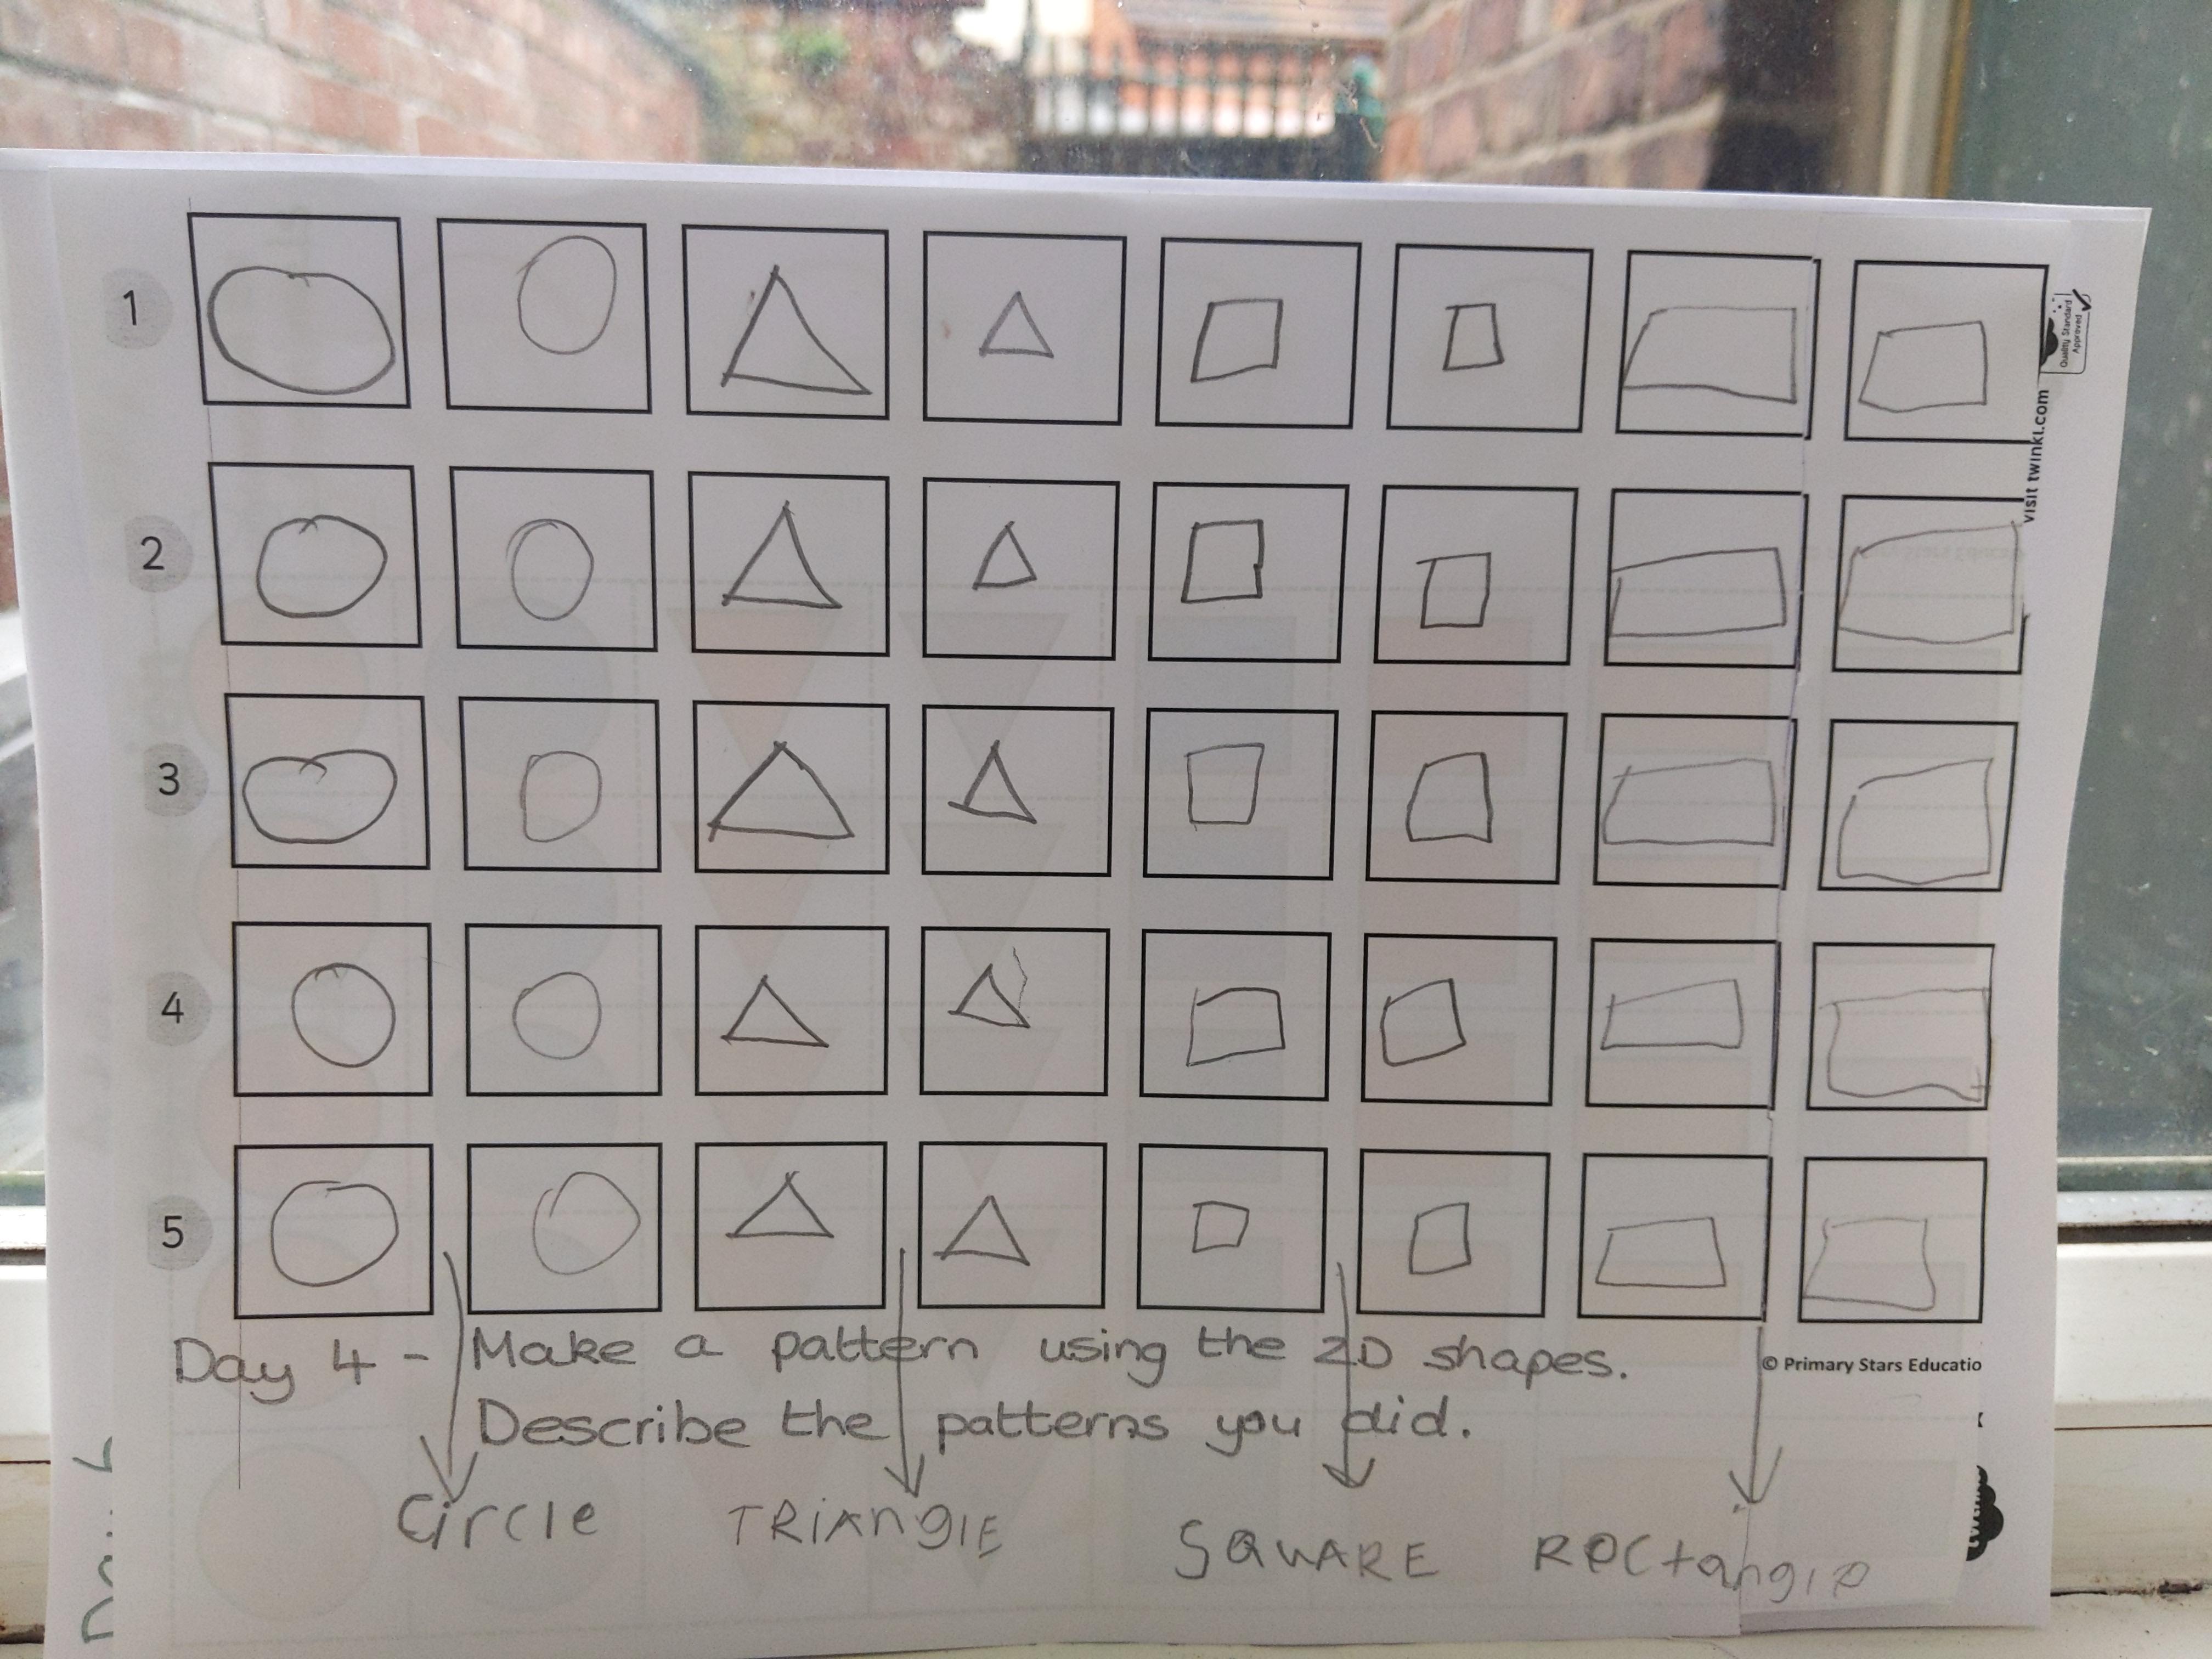 1
Quality Standard
Approved
visit twinkl.com
2
3
4
5
Day 4 - Make a pattern using the 2D shapes.
© Primary Stars Educatio
Describe the patterns you did.
Circle TRiAngIE SQUARE ROCtangle